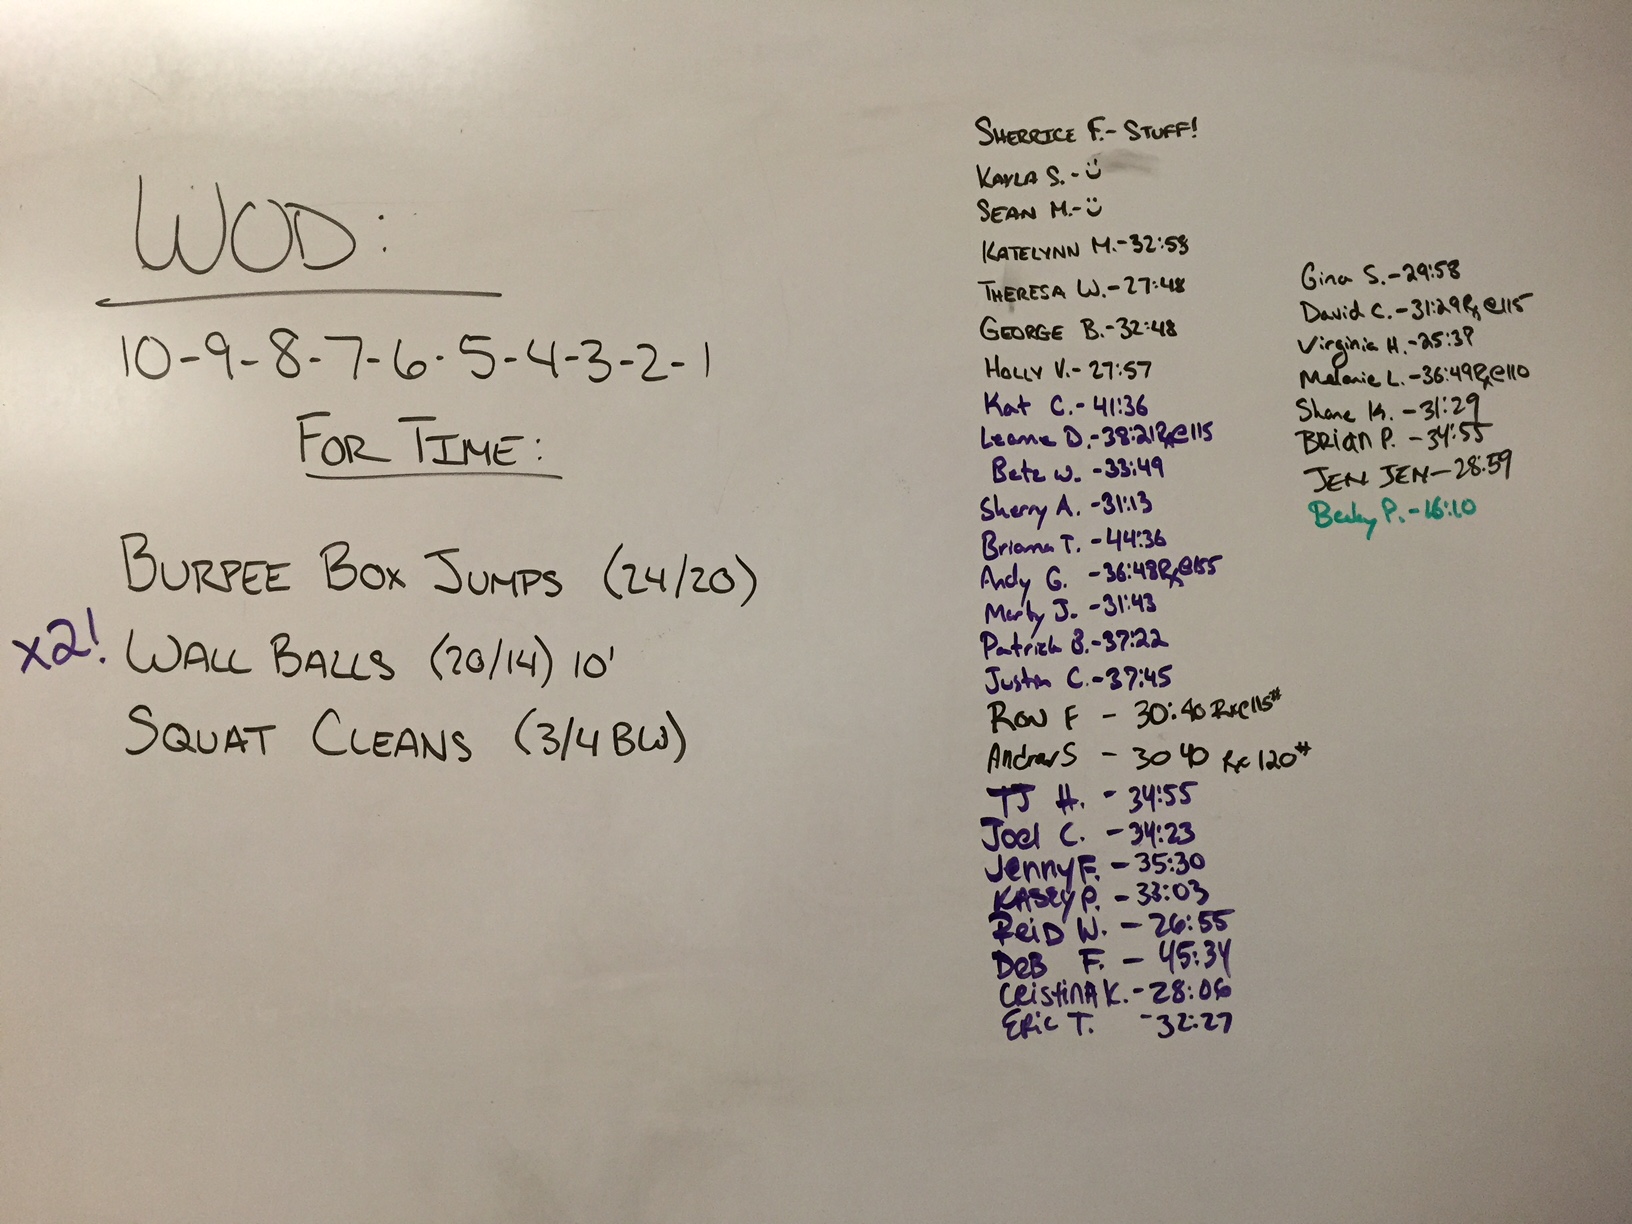 WOD:
10-9-8-7-6-5-4-3-2-1
FOR TIME:
BURPEE BOX JUMPS (24/20)
x2! WALL BALLS (20/14) 10'
SQUAT CLEANS (3/4 BW)
SHERRICE F.- STUFF!
KAYLA S.-
SEAN M.-
KATELYNN M.-32:53
THERESA W.-27:48
GEORGE B.-32:48
HOLLY V.- 27:57
Kat C.- 41:36
Leanne D.-38:21Rx@115
W. -33:49
Sherry A. -31:13
Briana T. -44:36
Andy G. -36:48Rx@155
Marty J. -31:43
Patrick B.-37:22
Justin C.-37:45
RON F - 30:40 Rx@115#
Andrew S - 30 40 Rx 120#
TJ H. - 34:55
Joel C. - 34:23
Jenny F. - 35:30
KASEY P. - 33:03
REID W. - 26:55
DEB F. - 45:34
CRISTINA K. - 28:06
ERIC T. - 32:27
Gina S.-29:58
David C.-31:29Rx@115
Virginia H.-25:39
Melanie L.-36:49Rx@110
Shane K. -31:29
BRIAN P. -34:55
JEN JEN-28:59
Becky P.-16:10